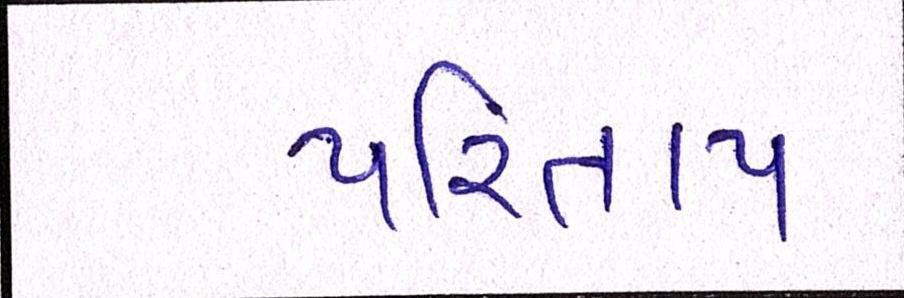 પરિતાપ